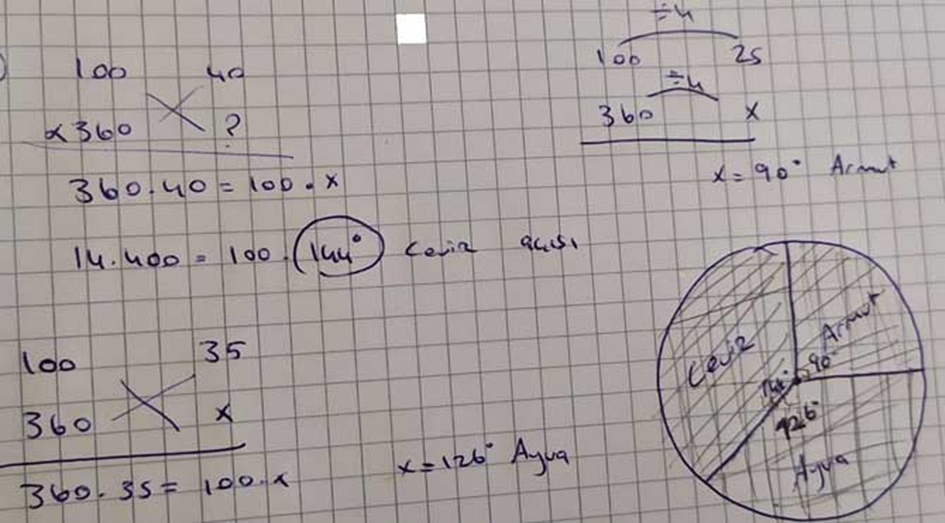 100 40
360 ?
360.40 = 100.x
14.400 = 100.144° Ceviz açısı
÷4
100 25
÷4
360 x
x = 90° Armut
100 35
360 x
360.35 = 100.x
x = 126° Ayva
Ceviz
Armut
144° 90°
126°
Ayva